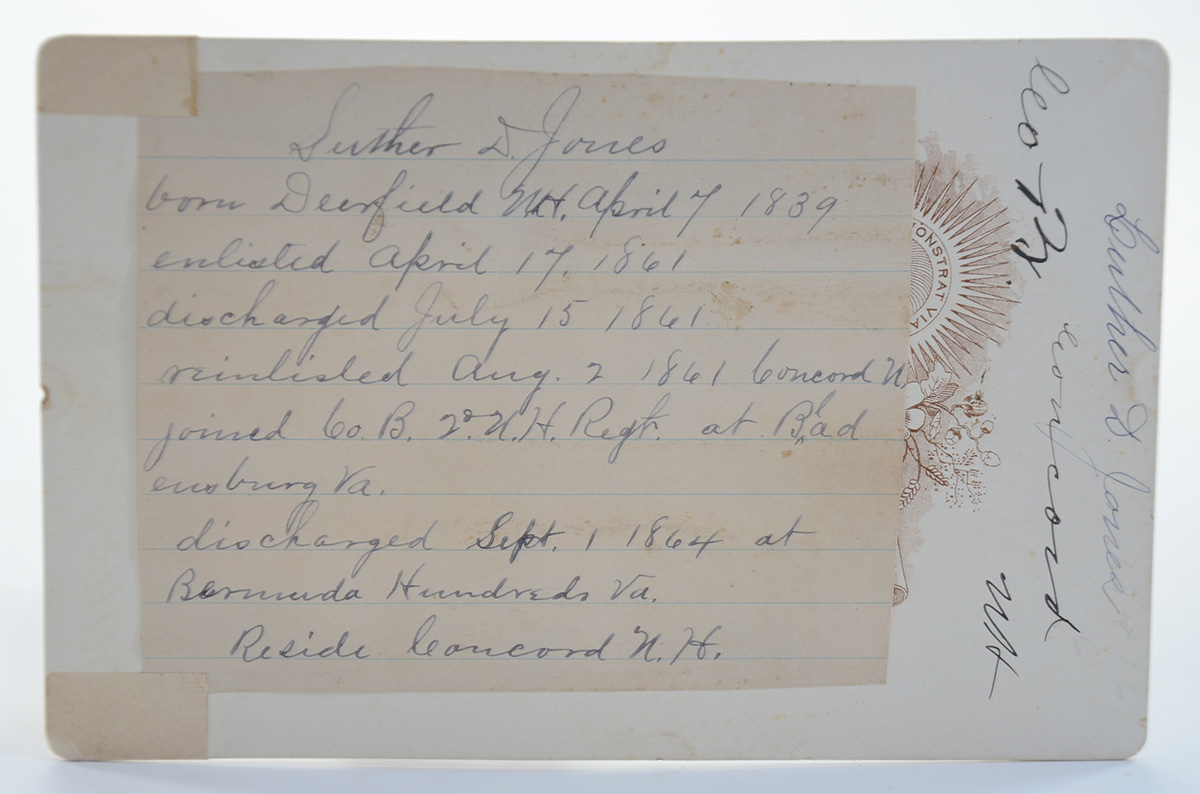 Luther D. Jones
born Deerfield N.H. April 7 1839
enlisted April 17, 1861
discharged July 15 1861
reinlisted Aug. 2 1861 Concord N
joined Co. B. 2d. N.H. Regt. at Blad
ensburg Va.
discharged Sept. 1 1864 at
Bermuda Hundreds Va.
Reside Concord N.H.
ONSTRAT VIA
Co B
Concord
NH
Luther D. Jones